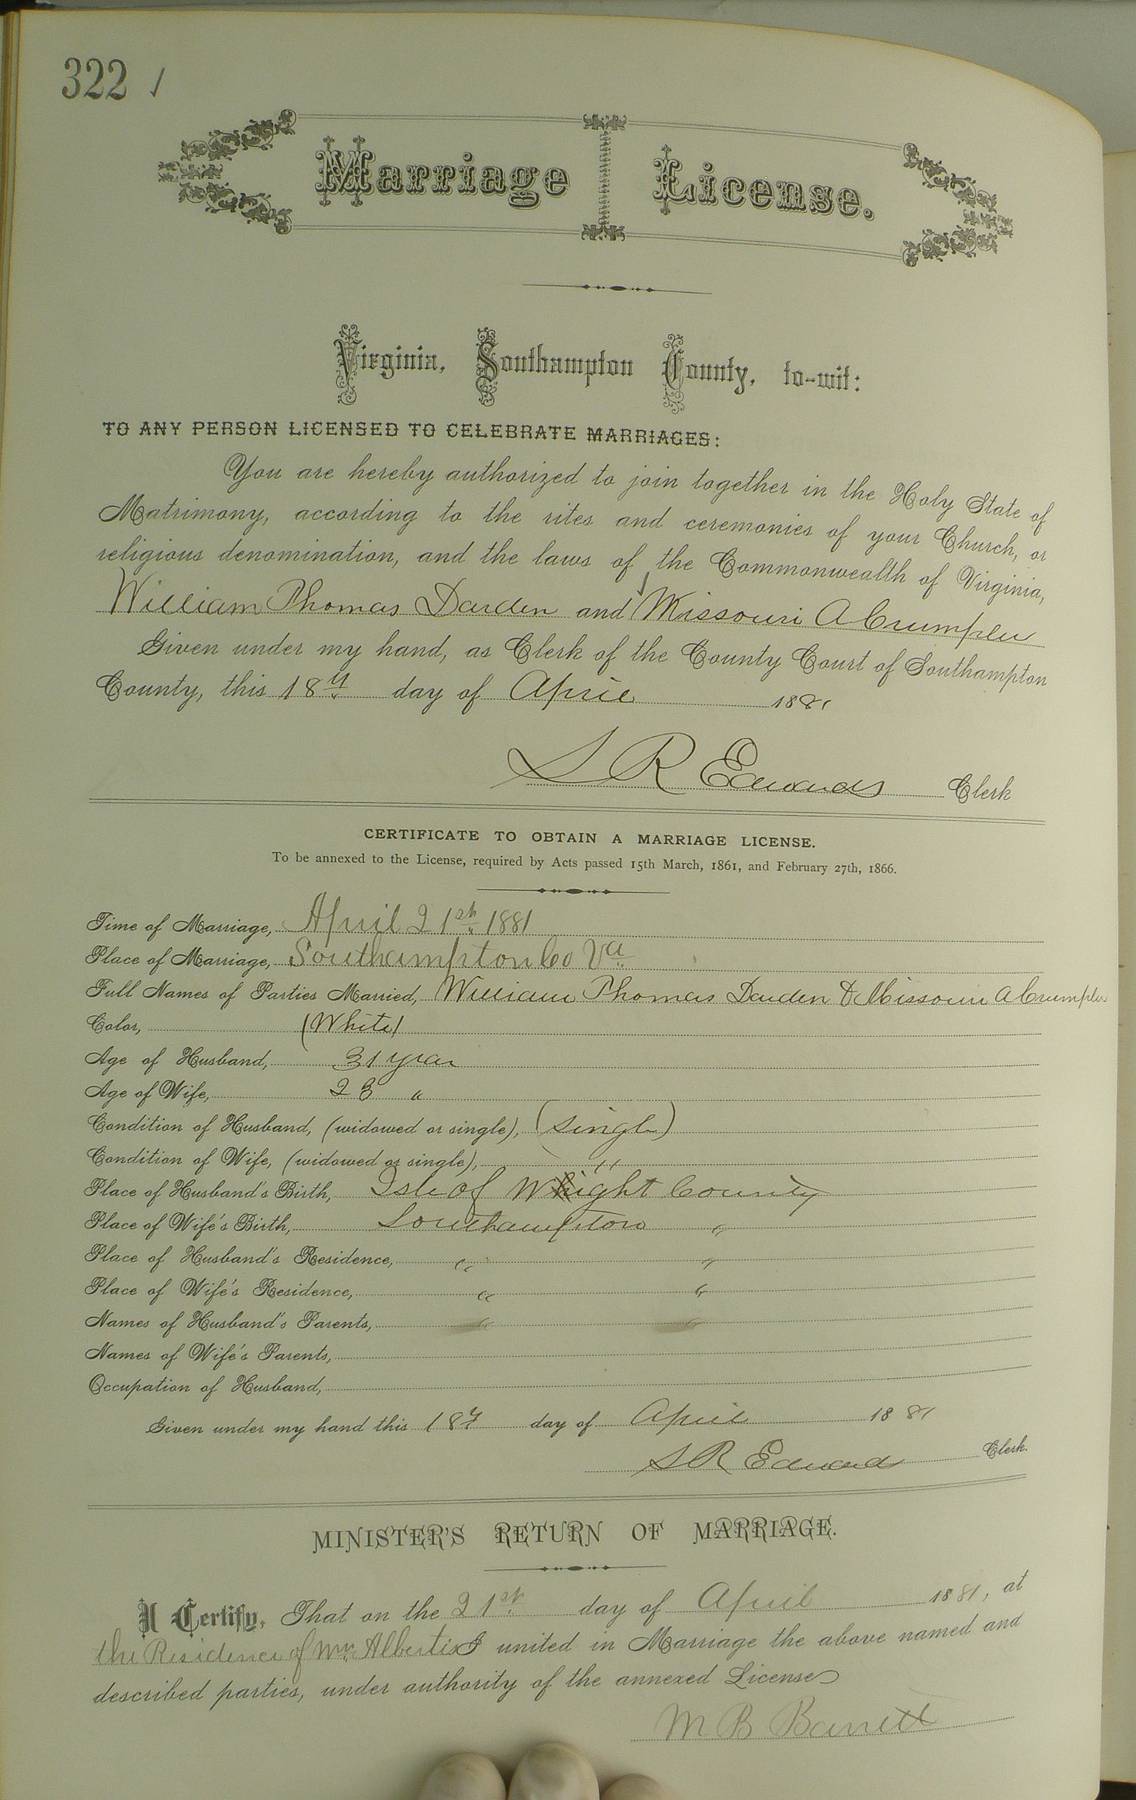 322
Marriage License.
Virginia, Southampton County, to-wit:
TO ANY PERSON LICENSED TO CELEBRATE MARRIAGES:
You are hereby authorized to join together in the Holy State of
Matrimony, according to the rites and ceremonies of your Church, or
religious denomination, and the laws of the Commonwealth of Virginia,
William Thomas Darden and Missouri A Crumpler
Given under my hand, as Clerk of the County Court of Southampton
County, this 18th day of April 1881
S R Edwards Clerk
CERTIFICATE TO OBTAIN A MARRIAGE LICENSE.
To be annexed to the License, required by Acts passed 15th March, 1861, and February 27th, 1866.
Time of Marriage, April 21st 1881
Place of Marriage, Southampton Co Va
Full Names of Parties Married, William Thomas Darden & Missouri A Crumpler
Color, (White)
Age of Husband, 31 year
Age of Wife, 23 "
Condition of Husband, (widowed or single), (single)
Condition of Wife, (widowed or single), "
Place of Husband's Birth, Isle of Wight County
Place of Wife's Birth, Southampton "
Place of Husband's Residence, " "
Place of Wife's Residence, " "
Names of Husband's Parents, " "
Names of Wife's Parents,
Occupation of Husband,
Given under my hand this 18th day of April 1881
S R Edwards Clerk.
MINISTER'S RETURN OF MARRIAGE.
I Certify, That on the 21st day of April 1881, at
the Residence of Mr. I united in Marriage the above named and
described parties, under authority of the annexed License
M B Barrett